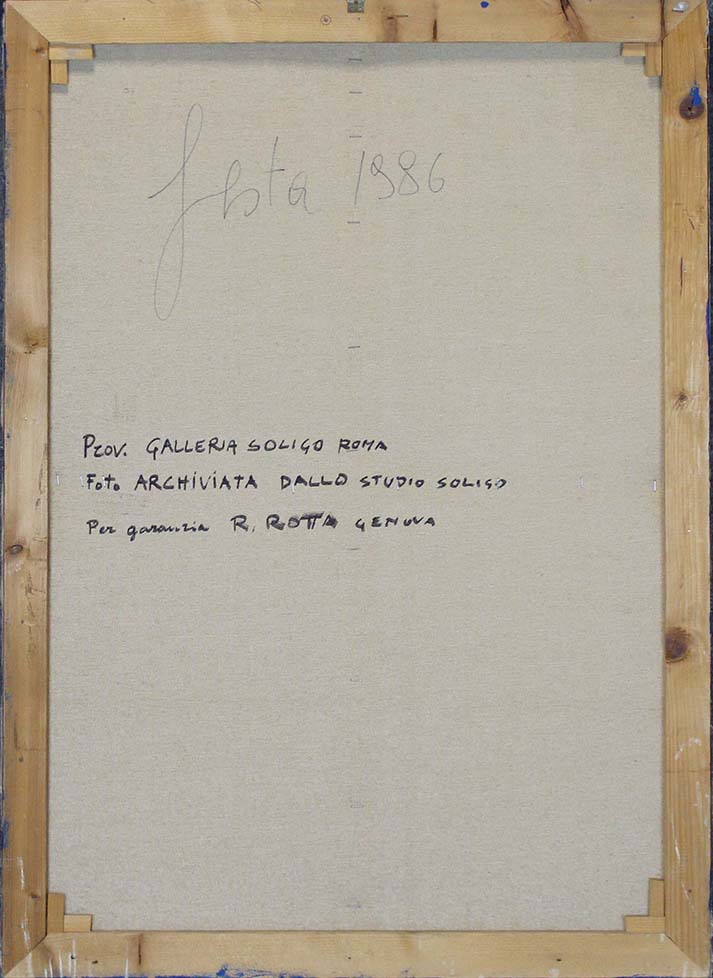 festa 1986
Prov. GALLERIA SOLIGO ROMA
Foto ARCHIVIATA DALLO STUDIO SOLIGO
Per garanzia R. ROTTA GENOVA